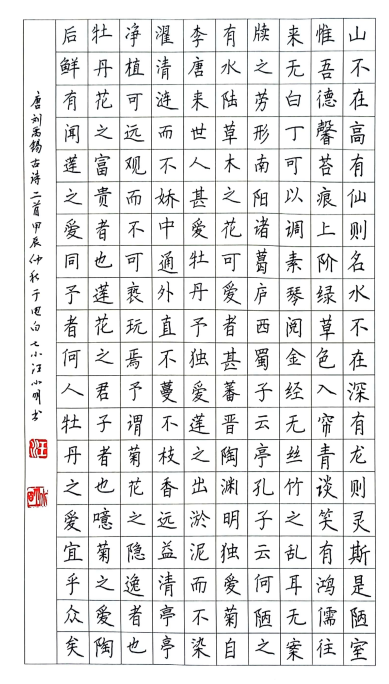 山不在高有仙则名水不在深有龙则灵斯是陋室
惟吾德馨苔痕上阶绿草色入帘青谈笑有鸿儒往
来无白丁可以调素琴阅金经无丝竹之乱耳无案
牍之劳形南阳诸葛庐西蜀子云亭孔子云何陋之
有水陆草木之花可爱者甚蕃晋陶渊明独爱菊自
李唐来世人甚爱牡丹予独爱莲之出淤泥而不染
濯清涟而不娇中通外直不蔓不枝香远益清亭亭
净植可远观而不可亵玩焉予谓菊花之隐逸者也
牡丹花之富贵者也莲花之君子者也噫菊之爱陶
后鲜有闻莲之爱者同予者何人牡丹之爱宜乎众矣
唐刘禹锡古诗二首甲辰仲秋于七小汪小明书
汪